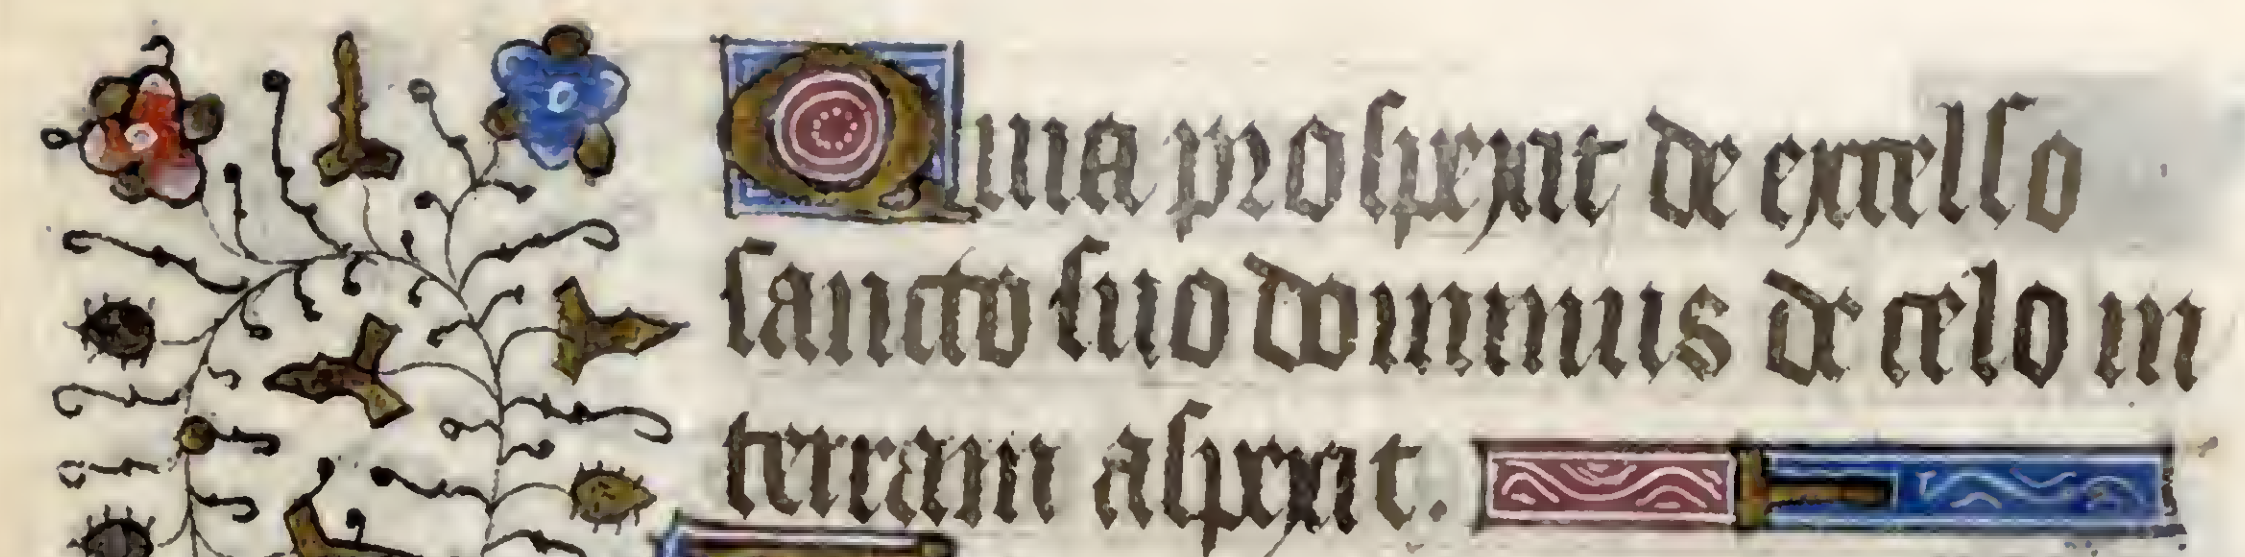 Quia prospexit de excelso
sancto suo dominus de celo in
terram aspexit.